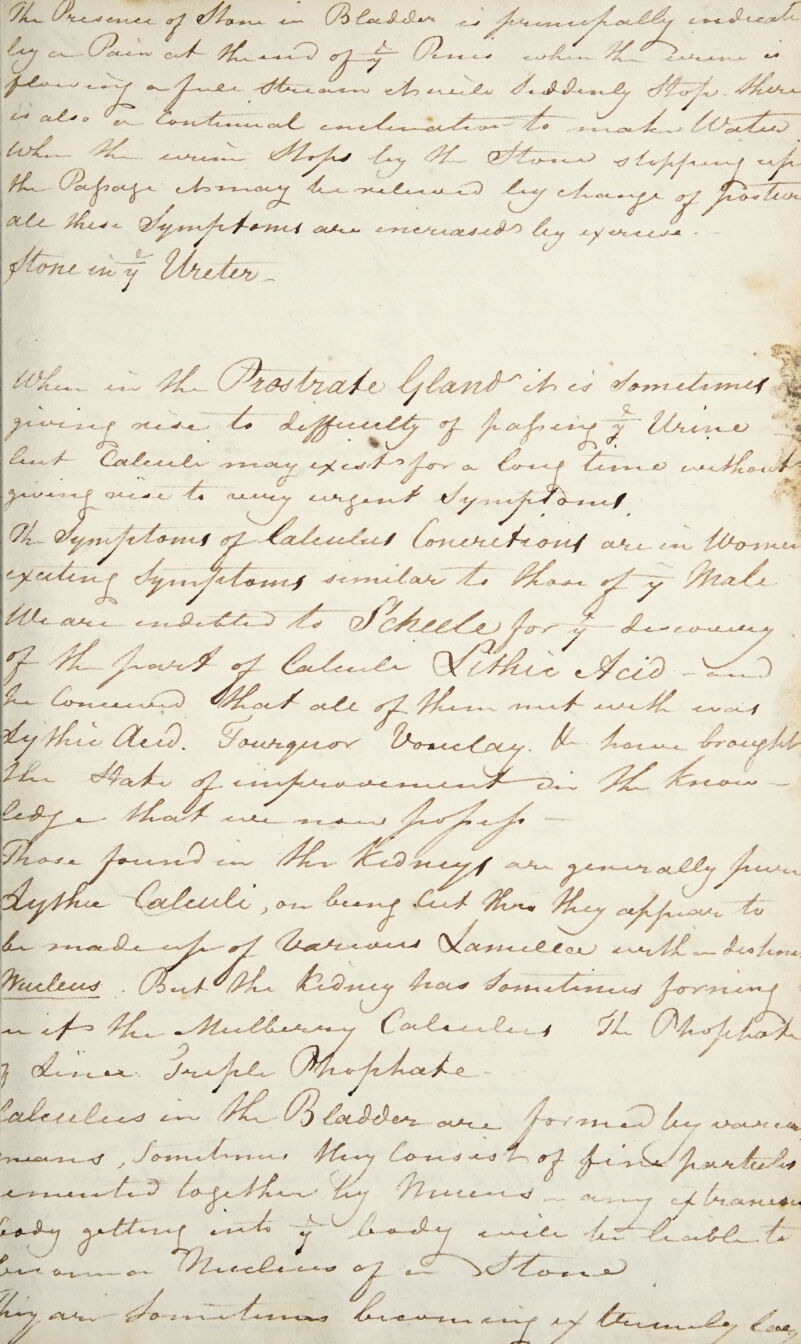 The Presence of Stone in Bladder is principally indicate
by a Pain at the end of ye Penis when the urine is
flowing a full stream it will Suddenly Stop. There
is also a Continual inclination to make Water
When the urine Stops by the Stone stopping up
the Paſsage it may be relieved by change of posture
all these Symptoms are increased by exercise.
Stone in ye Ureter
When in the Prostrate Gland it is Sometimes
giving rise to difficulty of paſsing ye Urine
but Calculi may exist for a long time without
giving rise to very urgent Symptoms.
The Symptoms of Calculus Concretions are in Women
exciting Symptoms similar to those of ye Male
We are indebted to Scheele for ye discovery
of the part of Calculi Lithic Acid - and
he Conceived that all of them met with was
Lythic Acid. Fourquor Vouclay. & have brought
the State of improvement in the know-
ledge that we now poſseſs -
Those found in the Kidneys are generally pure
Lythic Calculi, on being Cut thro they appear to
be made up of Various Lamellæ with a distinc
Nucleus. But the Kidney has Sometimes forning
in it the Mulberry Calculus The Phophate
of Lime Triple Phophate -
Calculus in the Bladder are formed by various
means, Sometimes they Consist of fine particles
cemented together by Mucus - any extraneous
body getting into ye body will be liable to
become a Nucleus of a Stone
They are Sometimes becoming extremely